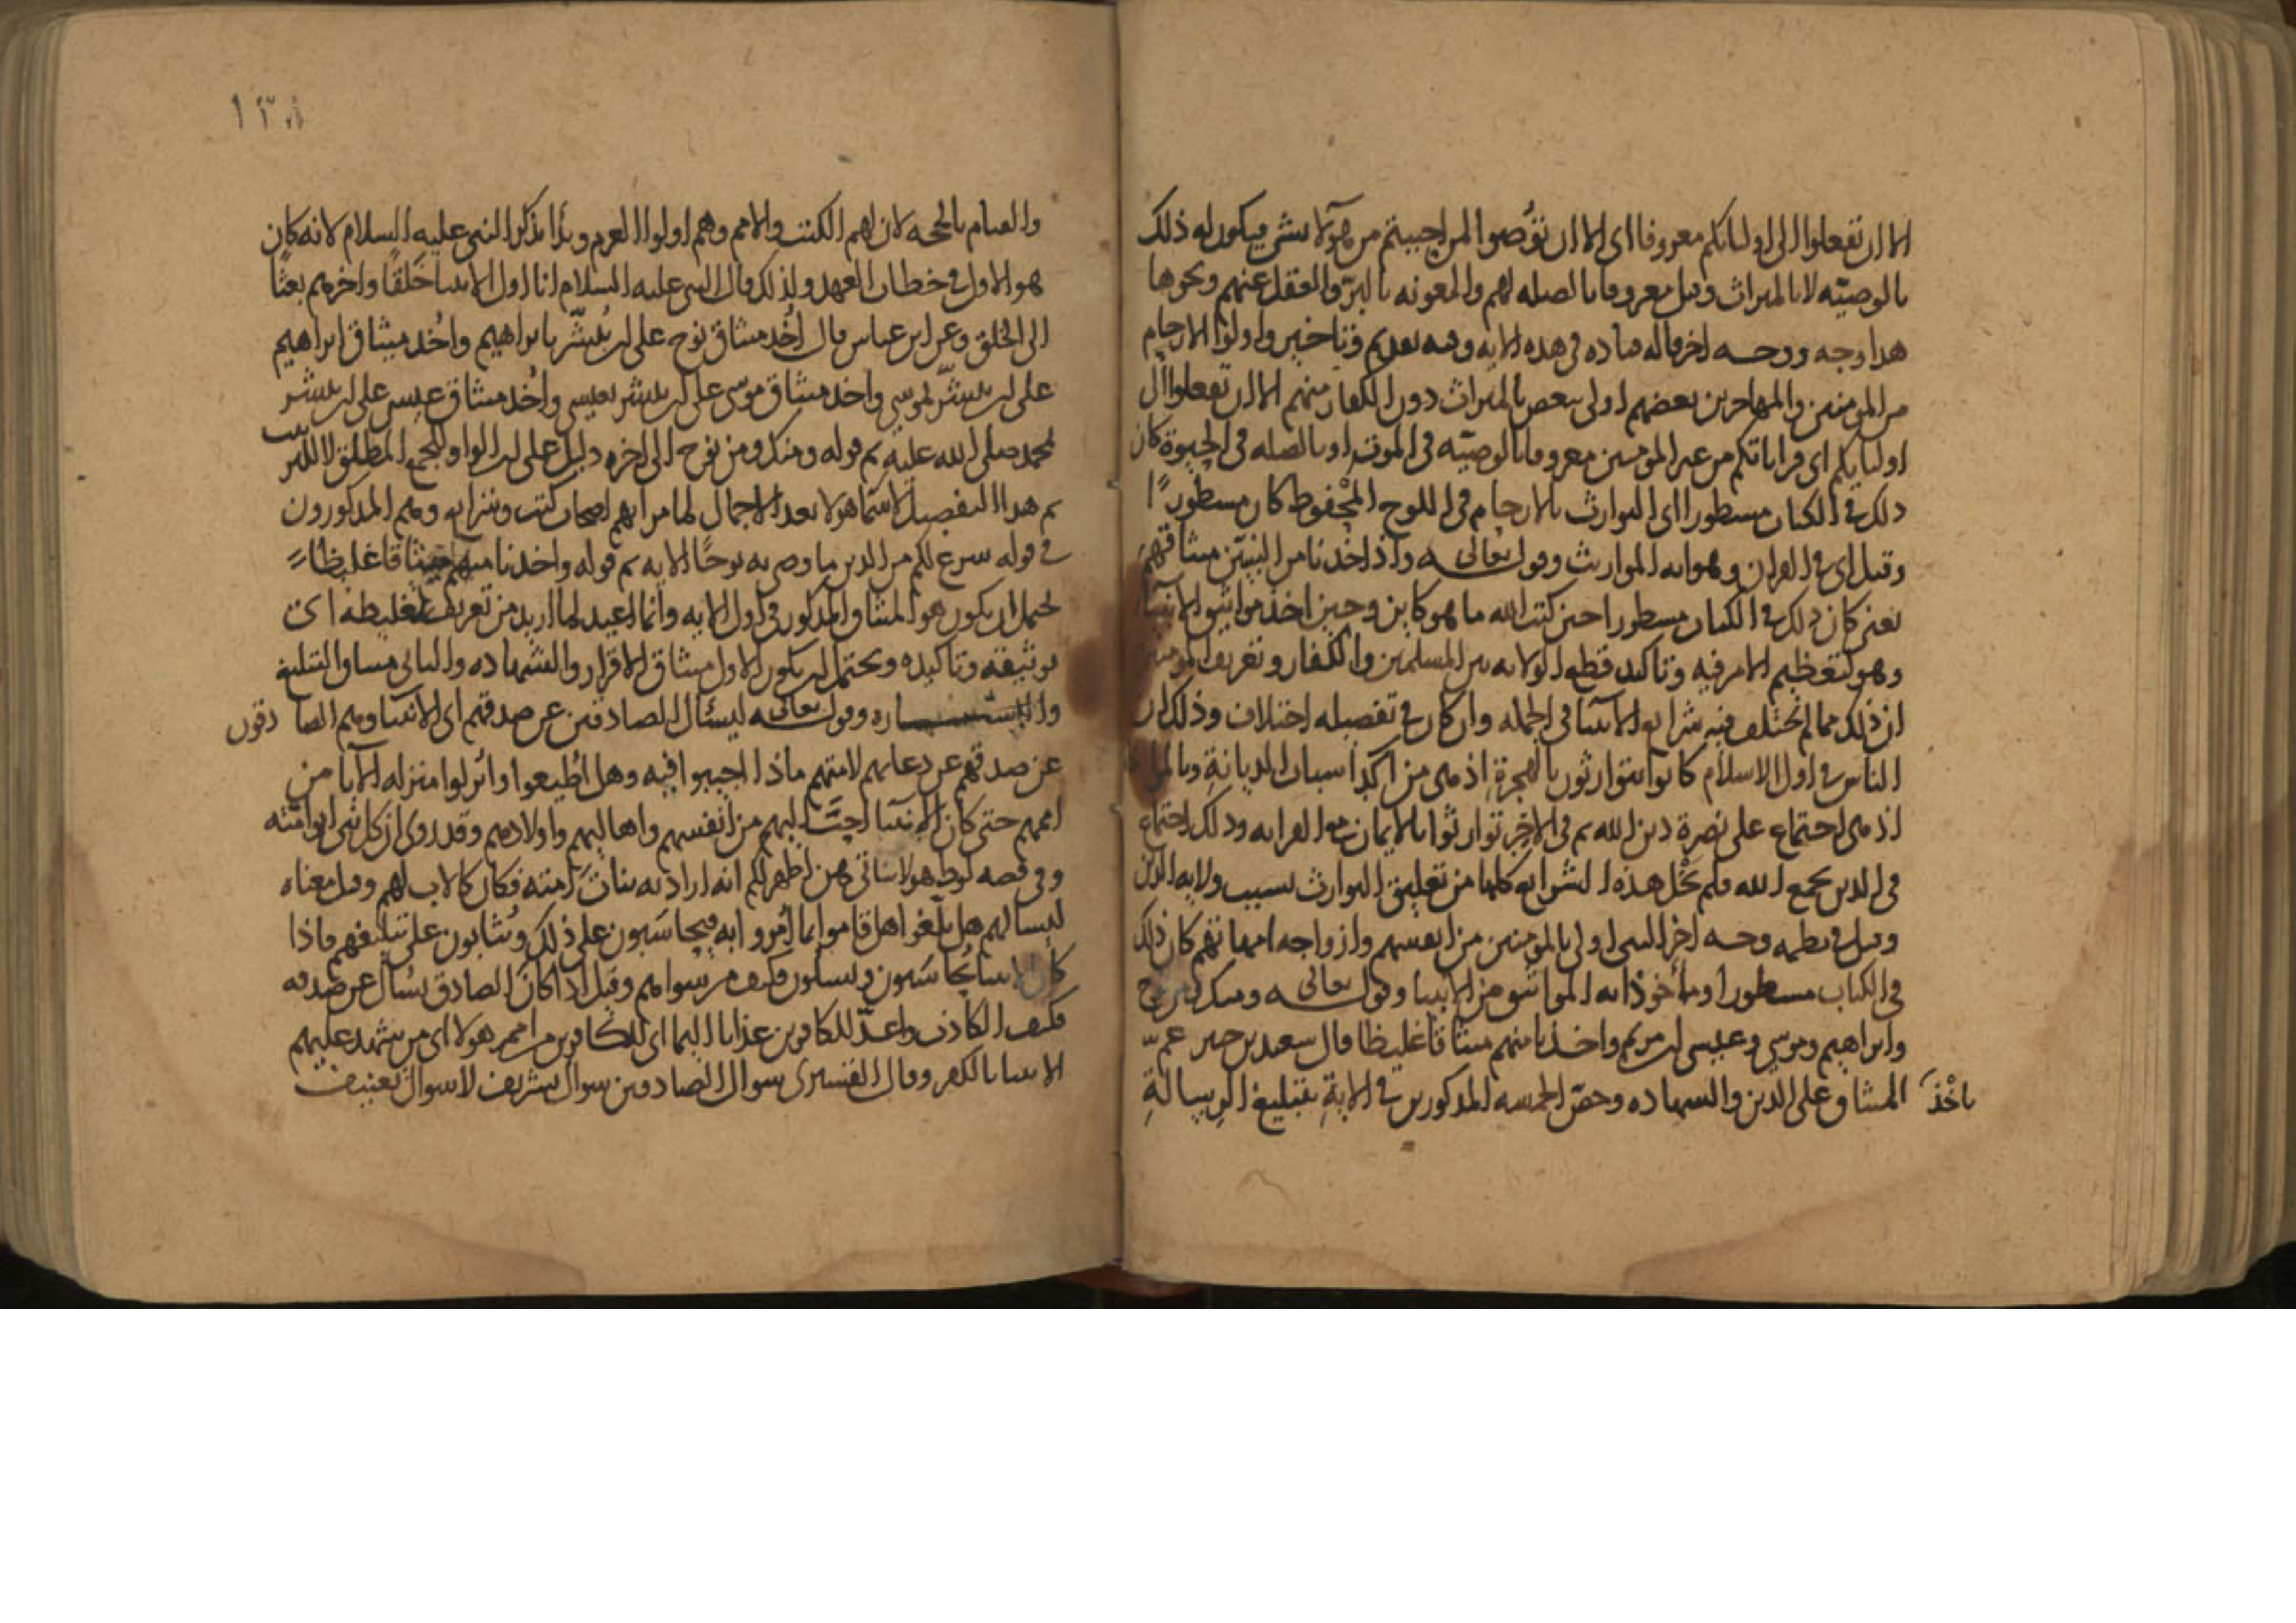 الا ان تفعلوا الى اوليائكم معروفا اى الا ان توصوا لمن احببتم من هؤلاء بشى فيكون له ذلك
بالوصيّه لا بالميراث وقيل معروفا بالصله لهم والمعونه بالبرّ والعقل عنهم ونحوها
هدا وجه ووجـــه اخر قاله قتاده فى هذه الايه وفيه تقديم وتاخير واولوا الارحام
من المومنين والمهاجرين بعضهم اولى ببعض بالميراث دون الكفار منهم الا ان تفعلوا الى
اوليايكم اى قراباتكم من غير المومنين معروفا بالوصيّه فى الموت او بالصله فى الحيوة كان
ذلك فى الكتاب مسطورا اى التوارث بالارحام فى اللوح المحفوظ كان مسطورًا
وقيل اى فى القران وهو ايه المواريث وقوله تعالى واذ اخذنا من النبيّن ميثاقهم
يعنى كان ذلك فى الكتاب مسطورا حين كتب الله ما هو كاين وحين اخذ مواثيق الانبيا
وهو لتعظيم الامر فيه وتاكيد قطع الولايه بين المسلمين والكفار وتعريف المومنين
ان ذلك مما لم تختلف فيه شرايع الانبيا فى الجمله وان كان فى تفصيله اختلاف وذلك ان
الناس فى اول الاسلام كانوا يتوارثون بالهجرةِ اذ هى من اكد اسباب الديانةِ
اذ هى اجتماع على نصرة دين الله ثم فى الاخِر توارثوا بالايمان مع القرابه وذلك اجتماع
فى الدين بجمع الله فلم تخْل هذه الشرايع كلها من تعليق التوارث بسبب ولايه الدين
وقيل فى نظمه وجـــه اخر النبى اولى بالمومنين من انفسهم وازواجه امهاتهم كان ذلك
فى الكتاب مسطورا ومأخوذا به المواثيق من الانبيا وقوله تعالى ومنك ومن نوح
وابراهيم وموسى وعيسى ابن مريم واخذنا منهم ميثاقا غليظا قال سعيد بن جبير عمّ
باخْذَ الميثاق على الدين والشهاده وخصّ الخمسه المذكورين فى الايةِ بتبليغ الرسالةِ
والقيام بالحجه لان لهم الكتب والامم وهم اولوا العزم وبدأ بذكر النبى عليه السلام لانه كان
هو الاول فى خطاب العهد ولذلك قال النبى عليه السلام انا اول الانبيا خَلقًا واخرهم بعثًا
الى الخلق وعن ابن عباس قال اُخذ ميثاق نوح على ان يُبشّر بابراهيم واُخذ ميثاق ابراهيم
على ان يبشّر بموسى واخذ ميثاق موسى على ان يبشر بعيسى واُخذ ميثاق عيسى على ان يبشر
بمحمد صلى الله عليه ثم قوله ومنك ومن نوح الى اخره دليل على ان الواو للجمع المطلق لا للترتيب
ثم هدا التفصيل لاسما هولا بعد الاجمال لها مر انهم اصحاب كتب وشرايع وهم المذكورون
فى قوله شرع لكم من الدين ما وصى به نوحًا الايه ثم قوله واخذنا منهم ميثاقا غليظا
يحتمل ان يكون هو الميثاق المذكور فى اول الايه وانما اعيد لما اريد من تعريف تغليظه اى
توثيقه وتاكيده ويحتمل ان يكون الاول ميثاق الاقرار والشهاده والثانى ميثاق التبليغ
وقوله تعالى ليسئال الصادقين عن صدقهم اى الانبيا وهم الصادقون
عن صدقهم عن دعايهم لامتهم ماذا اجيبوا فيه وهل اُطيعوا وانزلوا منزله الآبا من
اممهم حتى كان الانبيا احبَّ اليهم من انفسهم واهاليهم واولادهم وقد روى ان كل نبى ابو امّته
وفى قصه لوط هولا بناتى هن اطهر لكم انه اراد به بنات اَمته فكان كالاب لهم وقيل معناه
ليسالهم هل بلّغوا هل قاموا بما اُمروا به فيحاسَبون على ذلك ويُثابون على تبليغهم فاذا
كان الانبيا يُحاسَبون ويسئلون فكيف من سواهم وقيل اذا كان الصادق يسال عن صدقه
فكيف الكاذب واعدّ للكافرين عذابا اليما اى للكافرين من امم هولا اى من يشهد عليهم
الانبيا بالكفر وقال القشيرى سوال الصادقين سوال تشريف لا سوال تعنيف